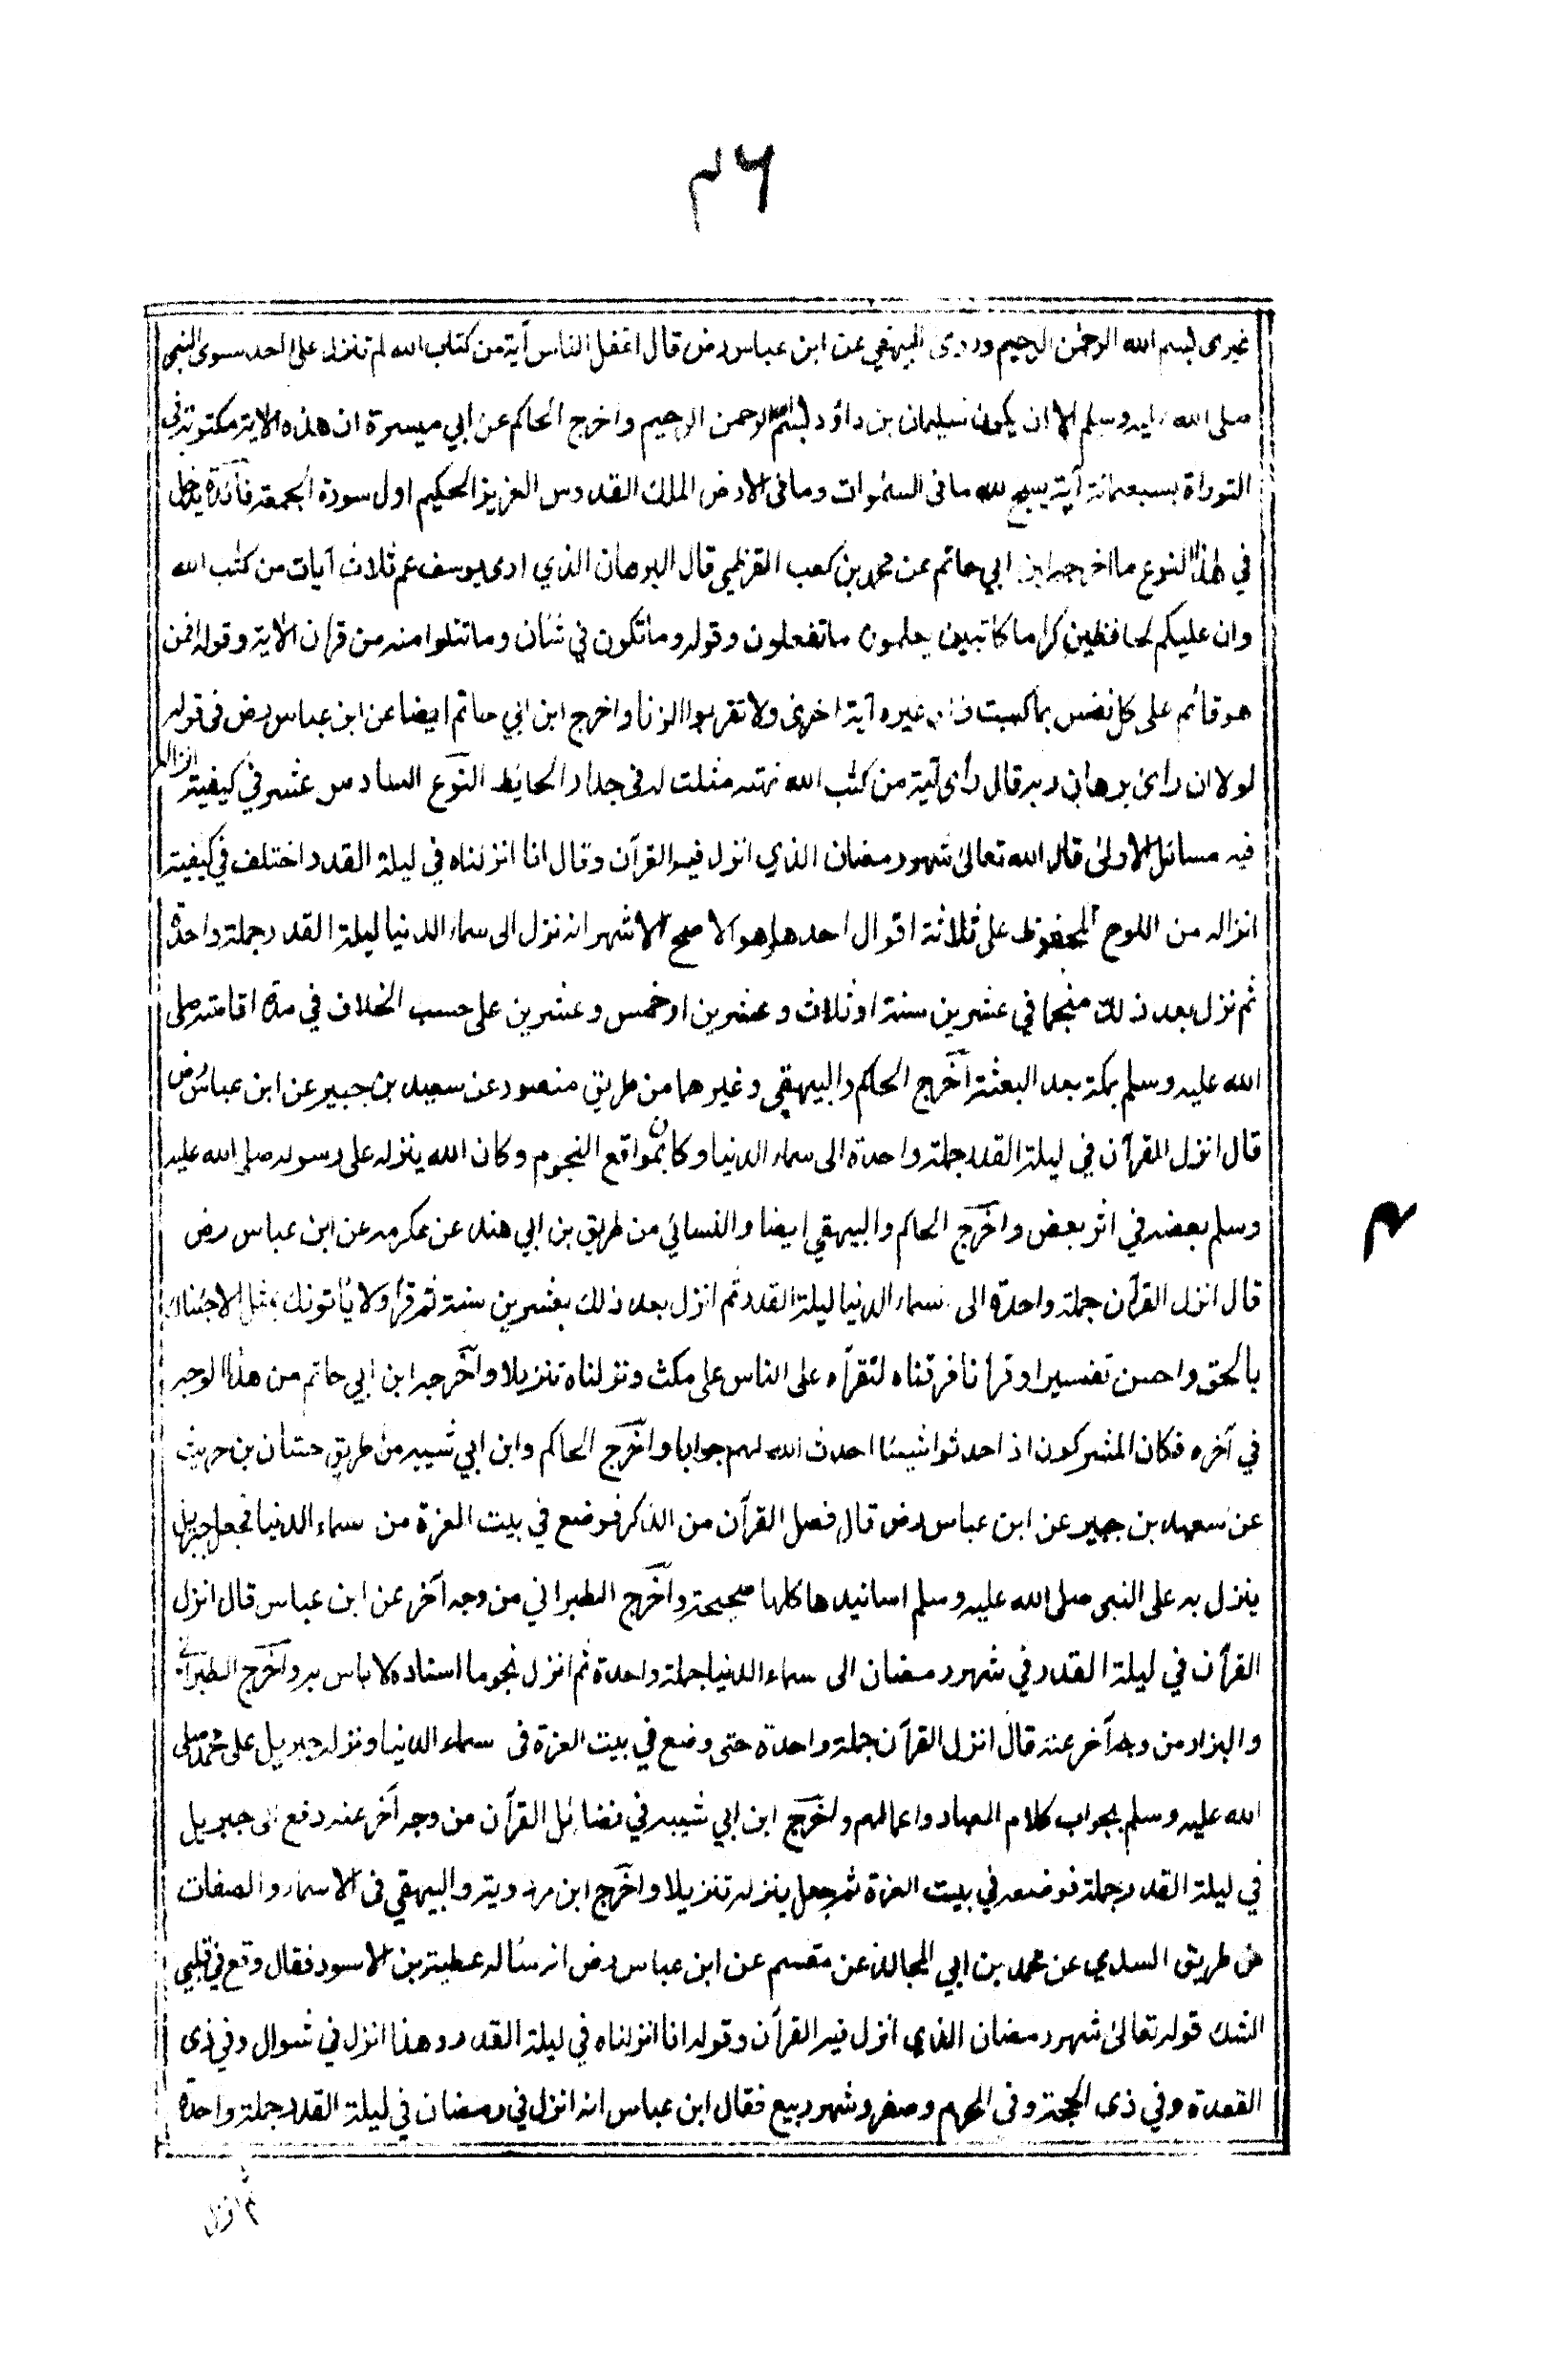 ٢٦
غيرى بسم الله الرحمٰن الرحيم وروى البيهقي عن ابن عباس رض قال اغفل الناس آية من كتاب الله لم تنزل على احد سوى النبى
صلى الله عليه وسلم الا ان يكون سليمان بن داؤد بسم الله الرحمن الرحيم واخرج الحاكم عن ابي ميسرة ان هذه الاية مكتوبة فى
التوراة بسبعمائة آية يسبح لله ما فى السمٰوات وما فى الارض الملك القدوس العزيز الحكيم اول سورة الجمعة فآئدة يدخل
في هذا النوع ما اخرجه ابن ابي حاتم عن محمد بن كعب القرظي قال البرهان الذي ارى يوسف عم ثلاث آيات من كتب الله
وان عليكم لحافظين كراما كاتبين يعلمون ما تفعلون وقوله وما تكون في شان وما تتلوا منه من قرآن الاية وقوله افمن
هو قائم على كل نفس بما كسبت زاد غيره آية اخرى ولا تقربوا الزنا واخرج ابن ابي حاتم ايضا عن ابن عباس رض فى قوله
لولا ان رأى برهان ربه قال رأى آية من كتب الله نهته مثلت له فى جدار الحايط النوع السادس عشر في كيفية انزاله
فيه مسائل الاولى قال الله تعالى شهر رمضان الذي انزل فيه القرآن وقال انا انزلناه في ليلة القدر اختلف في كيفية
انزاله من اللوح المحفوظ على ثلاثة اقوال احدها وهو الاصح الاشهر انه نزل الى سماء الدنيا ليلة القدر جملة واحدة
ثم نزل بعد ذلك منجما في عشرين سنة او ثلاث وعشرين او خمس وعشرين على حسب الخلاف في مدة اقامته صلى
الله عليه وسلم بمكة بعد البعثة اخرج الحاكم والبيهقي وغيرهما من طريق منصور عن سعيد بن جبير عن ابن عباس رض
قال انزل القرآن في ليلة القدر جملة واحدة الى سماء الدنيا وكان بمواقع النجوم وكان الله ينزله على رسوله صلى الله عليه
وسلم بعضه في اثر بعض واخرج الحاكم والبيهقي ايضا والنسائي من طريق بن ابي هند عن عكرمه عن ابن عباس رض
قال انزل القرآن جملة واحدة الى سماء الدنيا ليلة القدر ثم انزل بعد ذلك بعشرين سنة ثم قرأ ولا يأتونك بمثل الا جئناك
بالحق واحسن تفسيرا وقرآنا فرقناه لتقرأه على الناس على مكث ونزلناه تنزيلا واخرجه ابن ابي حاتم من هذا الوجه
في آخره فكان المشركون اذ احدثوا شيئا احدث الله لهم جوابا واخرج الحاكم وابن ابي شيبه من طريق حسان بن حريث
عن سعيد بن جبير عن ابن عباس رض قال فصل القرآن من الذكر فوضع في بيت العزة من سماء الدنيا فجعل جبريل
ينزل به على النبى صلى الله عليه وسلم اسانيدها كلها صحيحة واخرج الطبراني من وجه آخر عن ابن عباس قال انزل
القرآن في ليلة القدر في شهر رمضان الى سماء الدنيا جملة واحدة ثم انزل نجوما اسناده لا باس به واخرج الطبرانى
والبزار من وجه آخر عنه قال انزل القرآن جملة واحدة حتى وضع في بيت العزة فى سماء الدنيا ونزله جبريل على محمد صلى
الله عليه وسلم بجواب كلام العباد واعمالهم واخرج ابن ابي شيبه في فضائل القرآن من وجه آخر عنه دفع الى جبريل
في ليلة القدر جملة فوضعه في بيت العزة ثم جعل ينزله تنزيلا واخرج ابن مردويه والبيهقي فى الاسماء والصفات
من طريق السدي عن محمد بن ابي المجالد عن مقسم عن ابن عباس رض انه سئاله عطية بن الاسود فقال وقع في قلبي
الشك قوله تعالى شهر رمضان الذي انزل فيه القرآن وقوله انا انزلناه في ليلة القدر وهذا انزل في شوال وفي ذى
القعدة وفي ذى الحجة وفى المحرم وصفر وشهر ربيع فقال ابن عباس انه انزل في رمضان في ليلة القدر جملة واحدة
ثم انزل